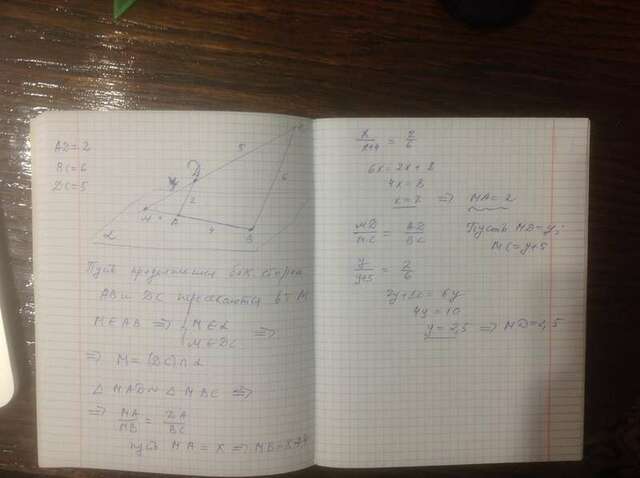 AD=2
BC=6
DC=5
5
D
6
2
M
A
4
B
α
Пусть продолжения бок. сторон
AB и DC пересекаются в т. M
M∈AB ⇒ { M∈α
M∈DC ⇒
⇒ M = (DC)∩α
△ MAD ~ △ MBC ⇒
⇒ MA/MB = DA/BC
пусть MA = x ⇒ MB = x+4
x/x+4 = 2/6
6x = 2x + 8
4x = 8
x = 2 ⇒ MA = 2
MD/MC = AD/BC
Пусть MD = y;
MC = y+5
y/y+5 = 2/6
2y+10 = 6y
4y = 10
y = 2,5 ⇒ MD = 2,5